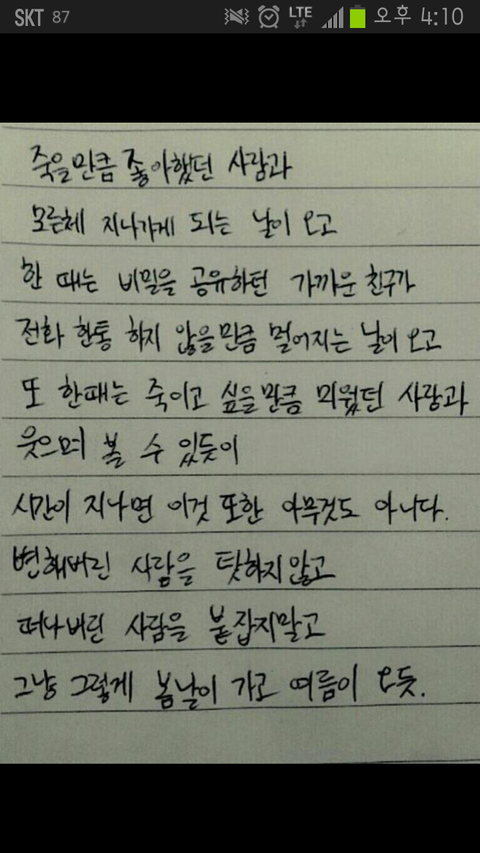 SKT 87 LTE 오후 4:10
죽을만큼 좋아했던 사람과
모른체 지나가게 되는 날이 오고
한 때는 비밀을 공유하던 가까운 친구가
전화 한통 하지 않을만큼 멀어지는 날이 오고
또 한때는 죽이고 싶을만큼 미웠던 사람과
웃으며 볼 수 있듯이
시간이 지나면 이것 또한 아무것도 아니다.
변해버린 사람을 탓하지않고
떠나버린 사람을 붙잡지말고
그냥 그렇게 봄날이 가고 여름이 오듯.